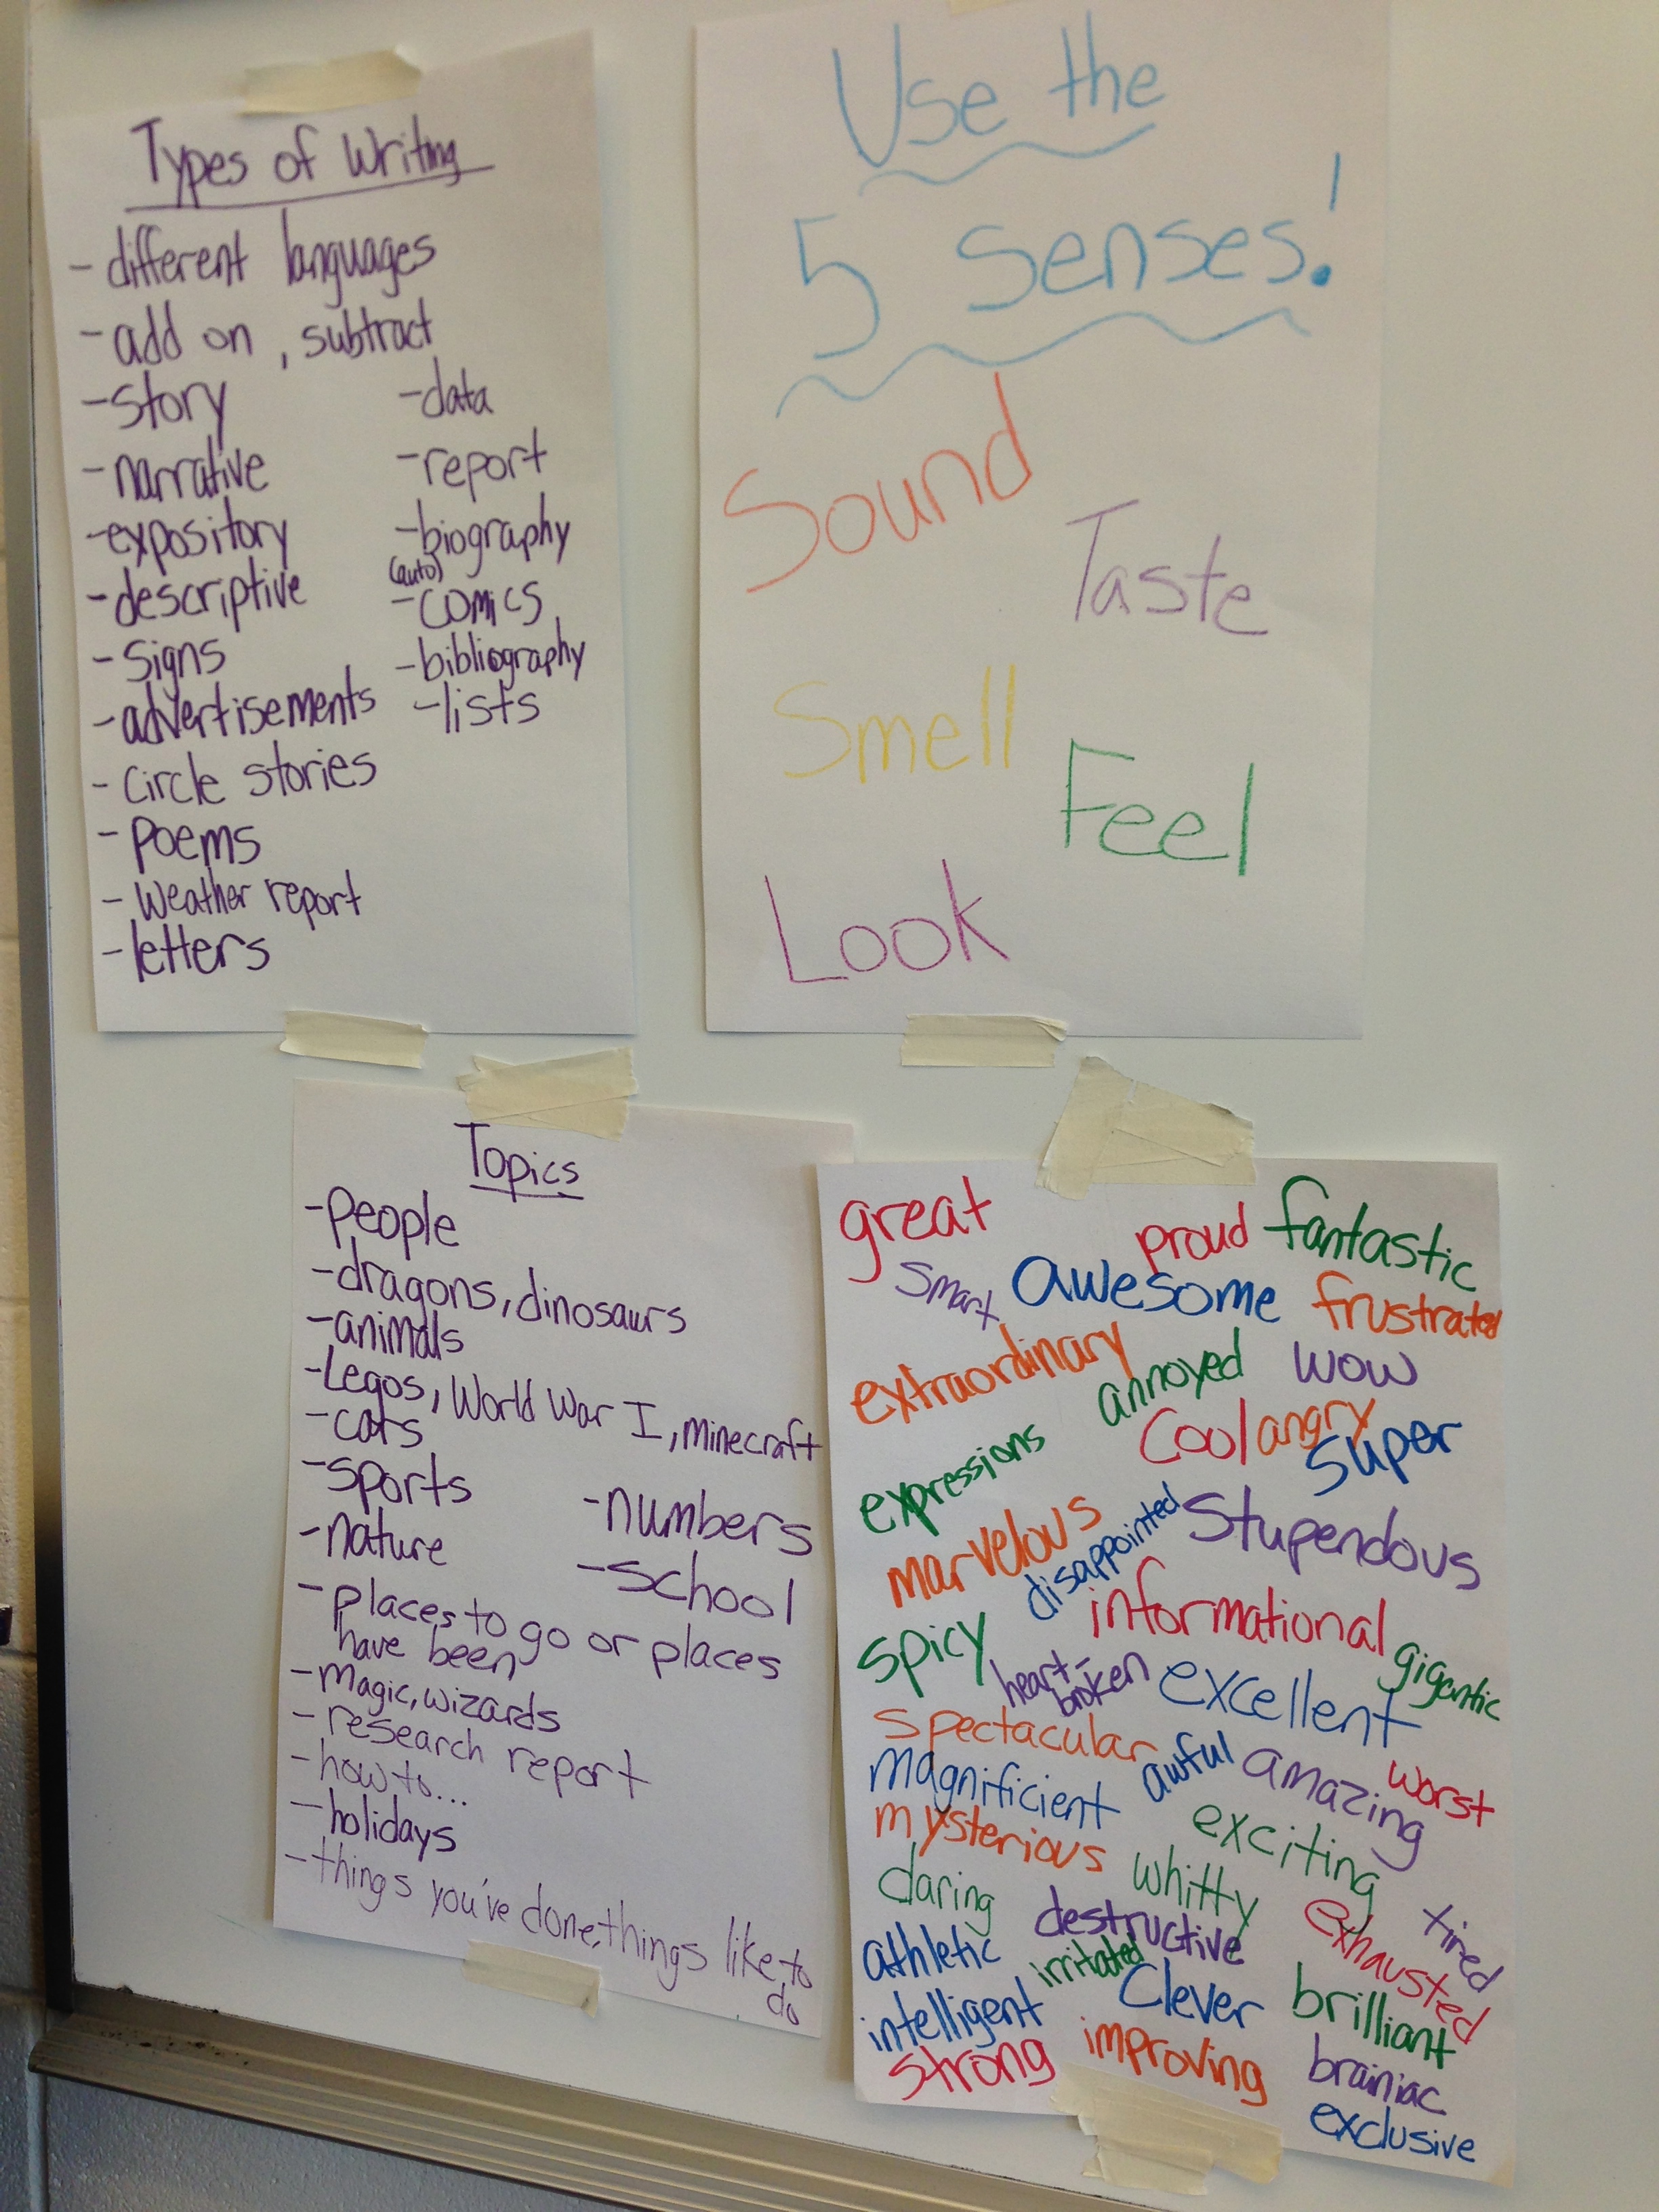 Types of Writing
- different languages
- add on, subtract
- story
- narrative
- expository
- descriptive
- signs
- advertisements
- circle stories
- poems
- weather report
- letters
- data
- report
- biography
(auto)
- comics
- bibliography
- lists
Use the
5 senses!
Sound
Taste
Smell
Feel
Look
Topics
- people
- dragons, dinosaurs
- animals
- Legos, World War I, minecraft
- cars
- sports
- nature
- numbers
- school
- places to go or places
have been
- magic, wizards
- research report
- how to...
- holidays
- things you've done, things like to
do
great
proud fantastic
smart awesome frustrated
extraordinary annoyed wow
cool angry super
expressions
marvelous disappointed stupendous
informational
spicy gigantic
heart-
broken excellent
spectacular
magnificient awful amazing worst
mysterious exciting
daring whitty
athletic destructive exhausted tired
irritated
intelligent Clever brilliant
strong improving brainiac
exclusive